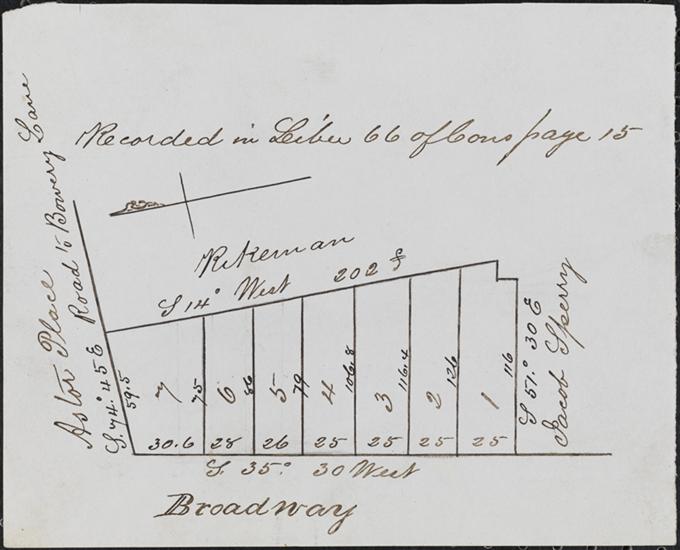 Recorded in Liber 66 of Cons page 15
Astor Place
Road to Bowery Lane
S. 74° 45 E
59.5
Rikeman
S 14° West 202
7
75
6
86
5
79
4
106.8
3
116.4
2
126
1
116
S 51° 30 E
Jacob Sperry
30.6 28 26 25 25 25 25
S. 35° 30 West
Broadway